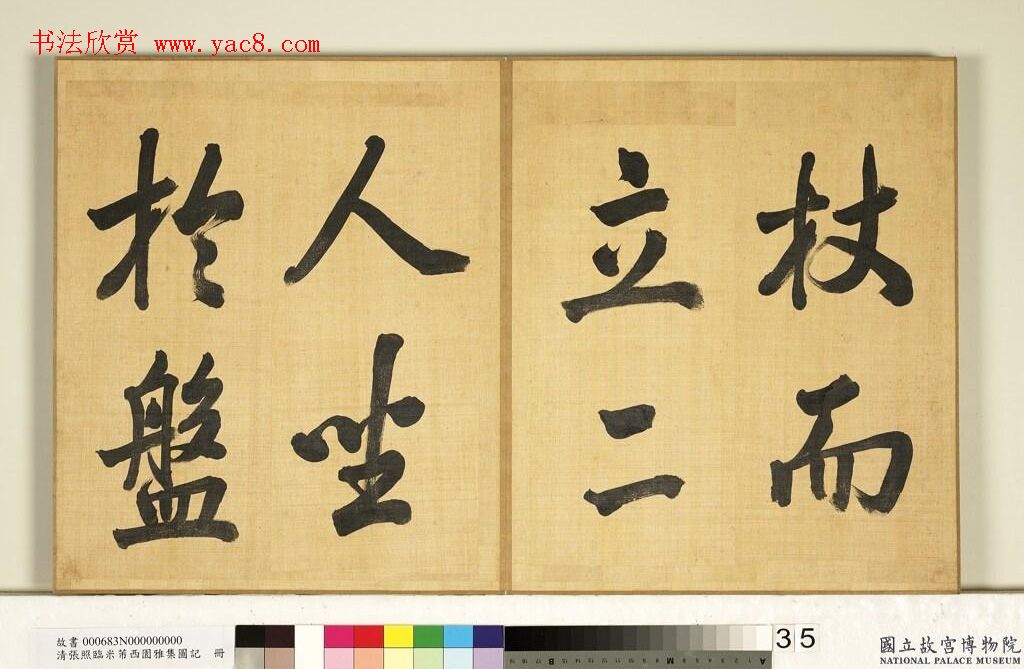 书法欣赏 www.yac8.com
杖而
立二
人坐
於盤
故書 000683N000000000
清張照臨米芾西園雅集圖記 冊
35
國立故宮博物院
NATIONAL PALACE MUSEUM